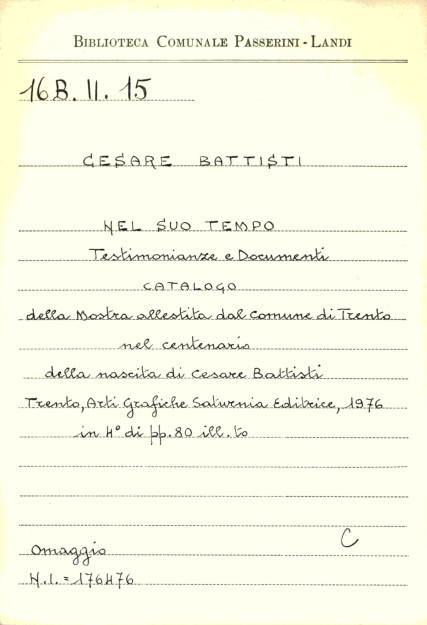 BIBLIOTECA COMUNALE PASSERINI - LANDI
16 B. II. 15
CESARE BATTISTI
NEL SUO TEMPO
Testimonianze e Documenti
CATALOGO
della Mostra allestita dal Comune di Trento
nel centenario
della nascita di Cesare Battisti
Trento, Arti Grafiche Saturnia Editrice, 1976
in 4° di pp. 80 ill.to
C
Omaggio
N.I. = 176476